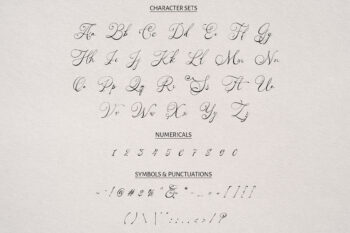 CHARACTER SETS
Aa Bb Cc Dd Ee Ff Gg
Hh Ii Jj Kk Ll Mm Nn
Oo Pp Qq Rr Ss Tt Uu
Vv Ww Xx Yy Zz
NUMERICALS
1 2 3 4 5 6 7 8 9 0
SYMBOLS & PUNCTUATIONS